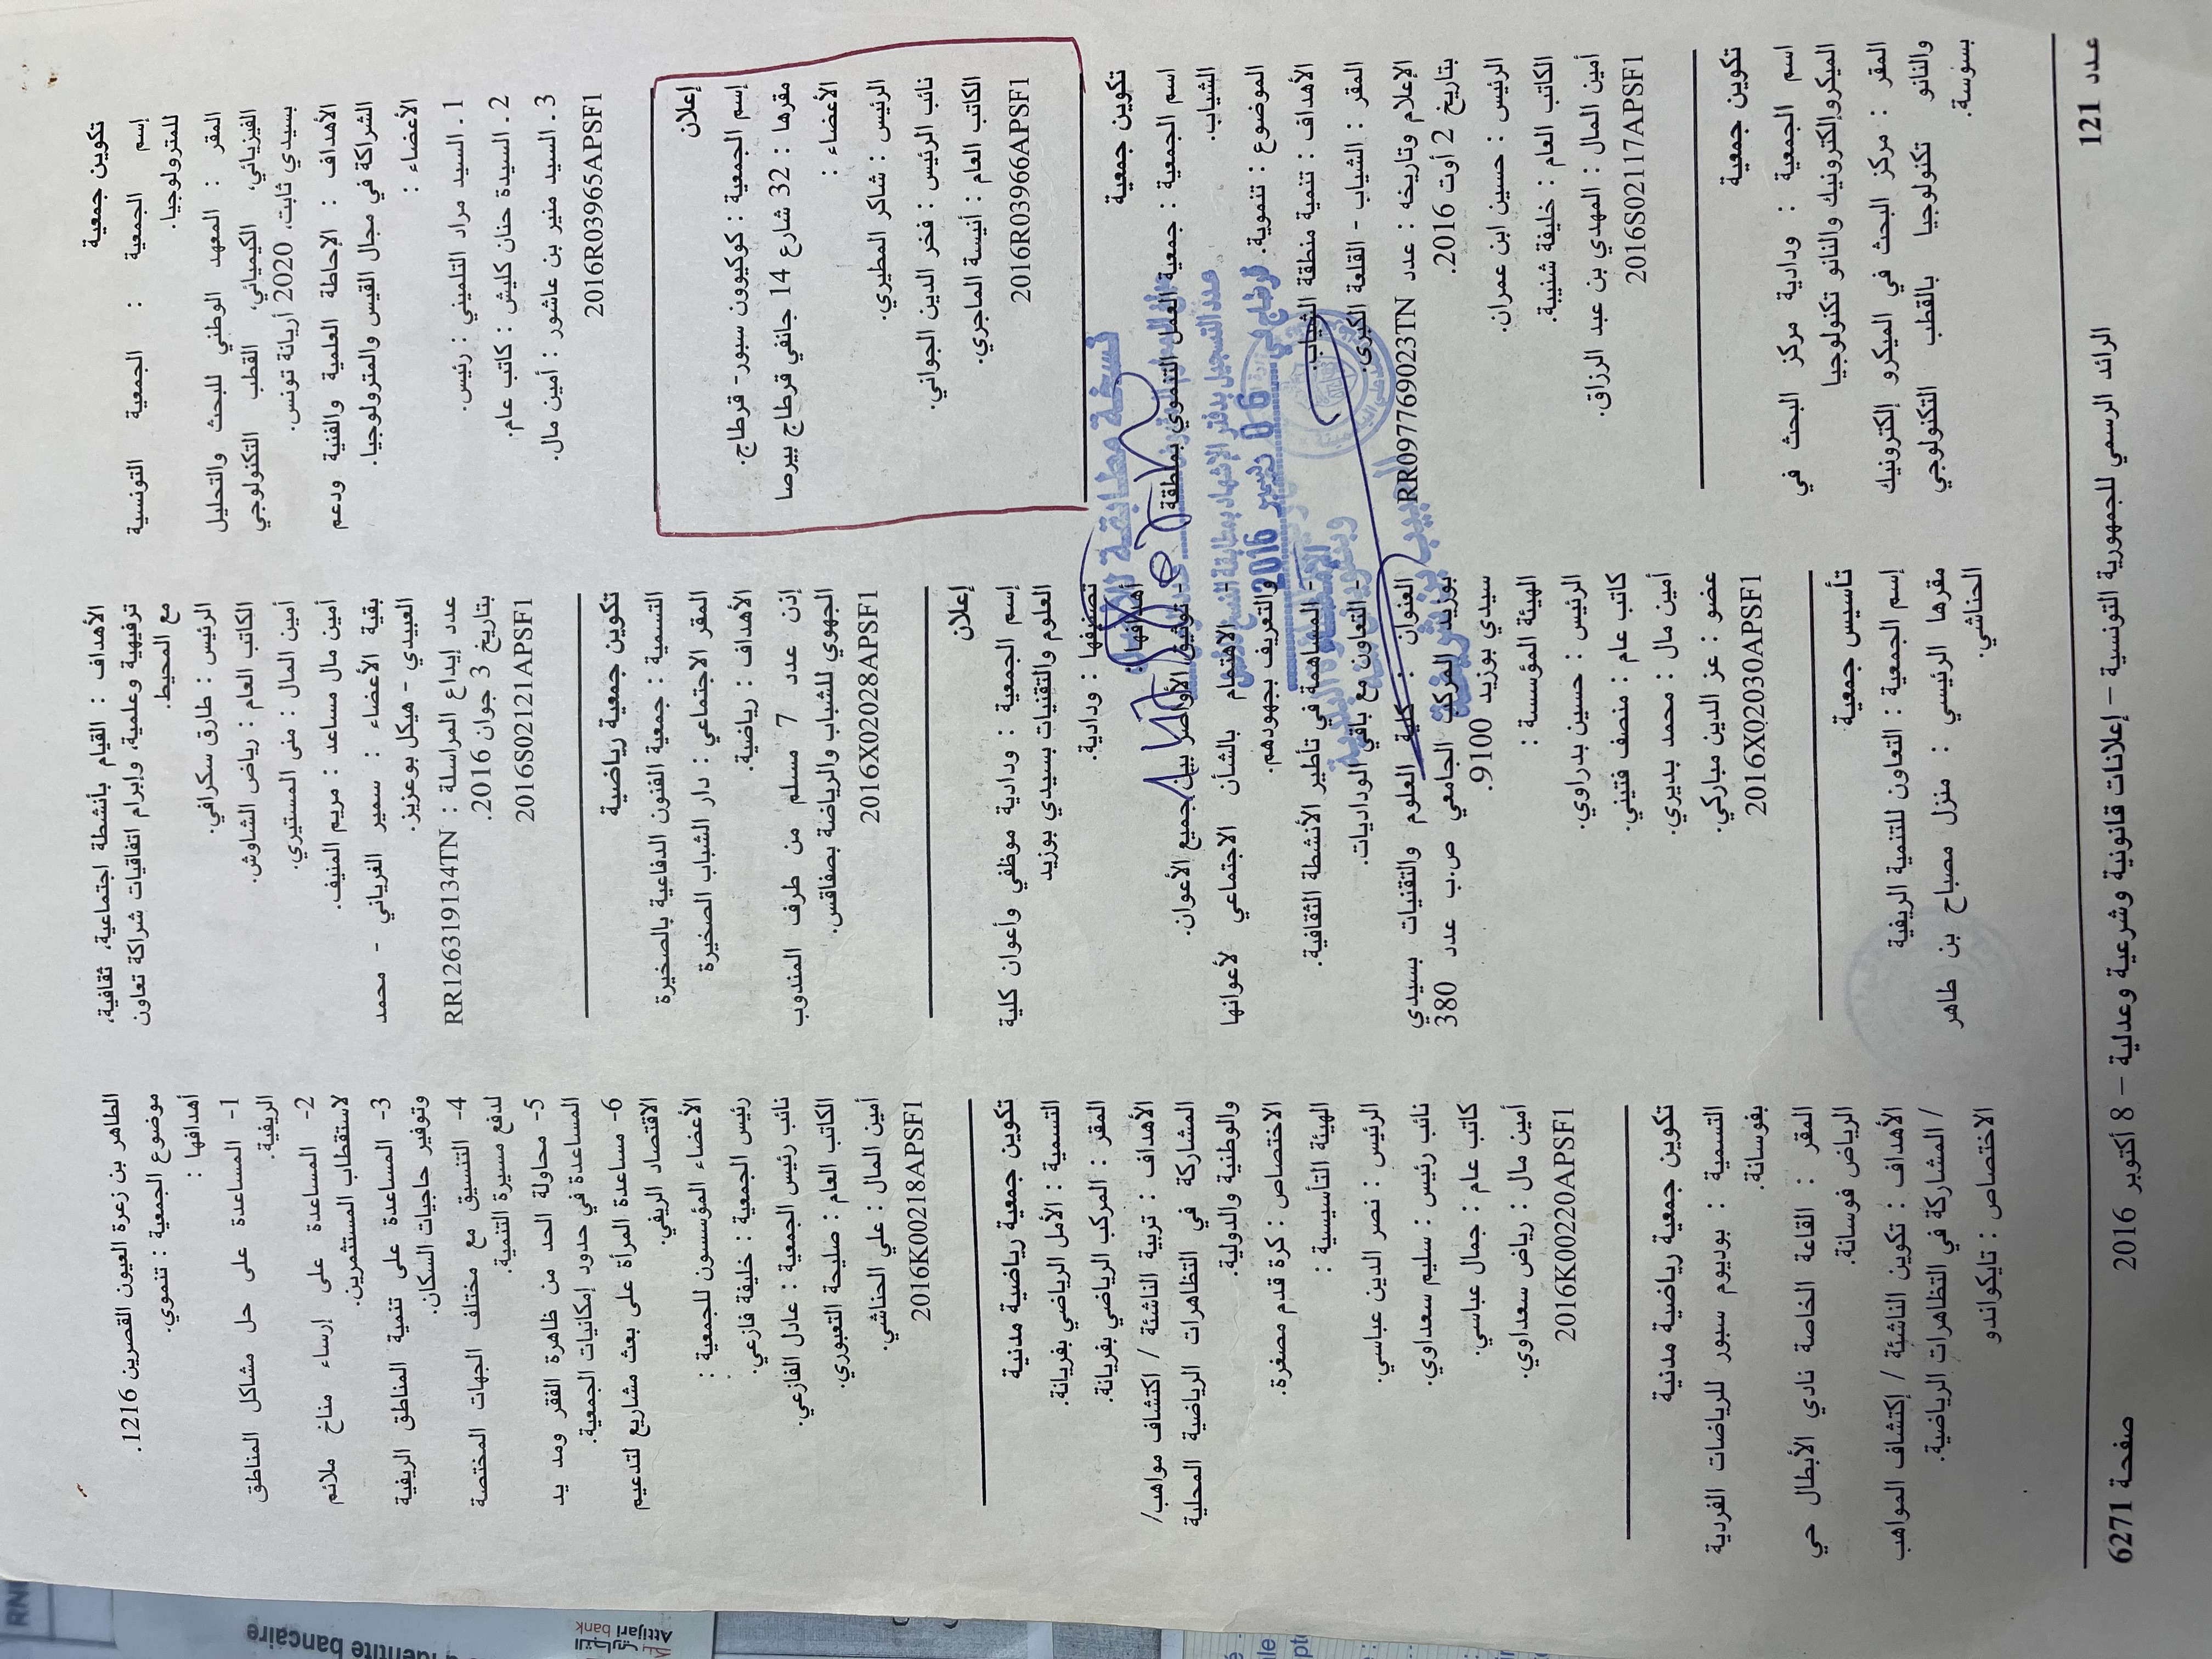 تكوين جمعية
إسم الجمعية : الجمعية التونسية
للمترولوجيا.
المقر : المعهد الوطني للبحث والتحليل
الفيزيائي، الكيميائي، القطب التكنولوجي
بسيدي ثابت، 2020 أريانة تونس.
الأهداف : الإحاطة العلمية والفنية ودعم
الشراكة في مجال القيس والمترولوجيا.
الأعضاء :
1 . السيد مراد التلميني : رئيس.
2 . السيدة حنان كليش : كاتب عام.
3 . السيد منير بن عاشور : أمين مال.
2016R03965APSF1
إعلان
إسم الجمعية : كوكيوون سبور- قرطاج.
مقرها : 32 شارع 14 جانفي قرطاج بيرصا
الأعضاء :
الرئيس : شاكر المطيري.
نائب الرئيس : فخر الدين الجواني.
الكاتب العام : أنيسة الماجري.
2016R03966APSF1
تكوين جمعية
اسم الجمعية : جمعية العمل التنموي بمنطقة
الشياب.
الموضوع : تنموية.
الأهداف : تنمية منطقة الشياب.
المقر : الشياب - القلعة الكبرى.
الإعلام وتاريخه : عدد RR097769023TN
بتاريخ 2 أوت 2016.
الرئيس : حسين ابن عمران.
الكاتب العام : خليفة شنيبة.
أمين المال : المهدي بن عبد الرزاق.
2016S02117APSF1
تكوين جمعية
اسم الجمعية : ودادية مركز البحث في
الميكروإلكترونيك والنانو تكنولوجيا
المقر : مركز البحث في الميكرو إلكترونيك
والنانو تكنولوجيا بالقطب التكنولوجي
بسوسة.
الأهداف : القيام بأنشطة اجتماعية، ثقافية،
ترفيهية وعلمية، وإبرام اتفاقيات شراكة تعاون
مع المحيط.
الرئيس : طارق سكرافي.
الكاتب العام : رياض الشاوش.
أمين المال : منى المستيري.
أمين مال مساعد : مريم المنيف.
بقية الأعضاء : سمير الفرياني - محمد
العبيدي - هيكل بوعزيز.
عدد إيداع المراسلة : RR126319134TN
بتاريخ 3 جوان 2016.
2016S02121APSF1
تكوين جمعية رياضية
التسمية : جمعية الفنون الدفاعية بالصخيرة
المقر الاجتماعي : دار الشباب الصخيرة
الأهداف : رياضية.
إذن عدد 7 مسلم من طرف المندوب
الجهوي للشباب والرياضة بصفاقس.
2016X02028APSF1
إعلان
إسم الجمعية : ودادية موظفي وأعوان كلية
العلوم والتقنيات بسيدي بوزيد
تصنيفها : ودادية.
أهدافها :
- توثيق الأواصر بين جميع الأعوان.
- الاهتمام بالشأن الاجتماعي لأعوانها
والتعريف بجهودهم.
- المساهمة في تأطير الأنشطة الثقافية.
- التعاون مع باقي الوداديات.
العنوان : كلية العلوم والتقنيات بسيدي
بوزيد المركب الجامعي ص.ب عدد 380
سيدي بوزيد 9100.
الهيئة المؤسسة :
الرئيس : حسين بدراوي.
كاتب عام : منصف فتيتي.
أمين مال : محمد بديري.
عضو : عز الدين مباركي.
2016X02030APSF1
تأسيس جمعية
إسم الجمعية : التعاون للتنمية الريفية
مقرها الرئيسي : منزل مصباح بن طاهر
الحناشي.
الطاهر بن زعرة العيون القصرين 1216.
موضوع الجمعية : تنموي.
أهدافها :
1- المساعدة على حل مشاكل المناطق
الريفية.
2- المساعدة على إرساء مناخ ملائم
لاستقطاب المستثمرين.
3- المساعدة على تنمية المناطق الريفية
وتوفير حاجيات السكان.
4- التنسيق مع مختلف الجهات المختصة
لدفع مسيرة التنمية.
5- محاولة الحد من ظاهرة الفقر ومد يد
المساعدة في حدود إمكانيات الجمعية.
6- مساعدة المرأة على بعث مشاريع لتدعيم
الاقتصاد الريفي.
الأعضاء المؤسسون للجمعية :
رئيس الجمعية : خليفة قازعي.
نائب رئيس الجمعية : عادل الفازعي.
الكاتب العام : صليحة التعبوري.
أمين المال : علي الحناشي.
2016K00218APSF1
تكوين جمعية رياضية مدنية
التسمية : الأمل الرياضي بفريانة.
المقر : المركب الرياضي بفريانة.
الأهداف : تربية الناشئة / اكتشاف مواهب/
المشاركة في التظاهرات الرياضية المحلية
والوطنية والدولية.
الاختصاص : كرة قدم مصغرة.
الهيئة التأسيسية :
الرئيس : نصر الدين عباسي.
نائب رئيس : سليم سعداوي.
كاتب عام : جمال عباسي.
أمين مال : رياض سعداوي.
2016K00220APSF1
تكوين جمعية رياضية مدنية
التسمية : بوديوم سبور للرياضات الفردية
بفوسانة.
المقر : القاعة الخاصة نادي الأبطال حي
الرياض فوسانة.
الأهداف : تكوين الناشئة / إكتشاف المواهب
/ المشاركة في التظاهرات الرياضية.
الاختصاص : تايكواندو
عدد 121
الرائد الرسمي للجمهورية التونسية – إعلانات قانونية وشرعية وعدلية – 8 أكتوبر 2016
صفحة 6271
نسخة مطابقة للأصل
06 ديسمبر 2016
d'identité bancaire
التجاري
Attijari bank